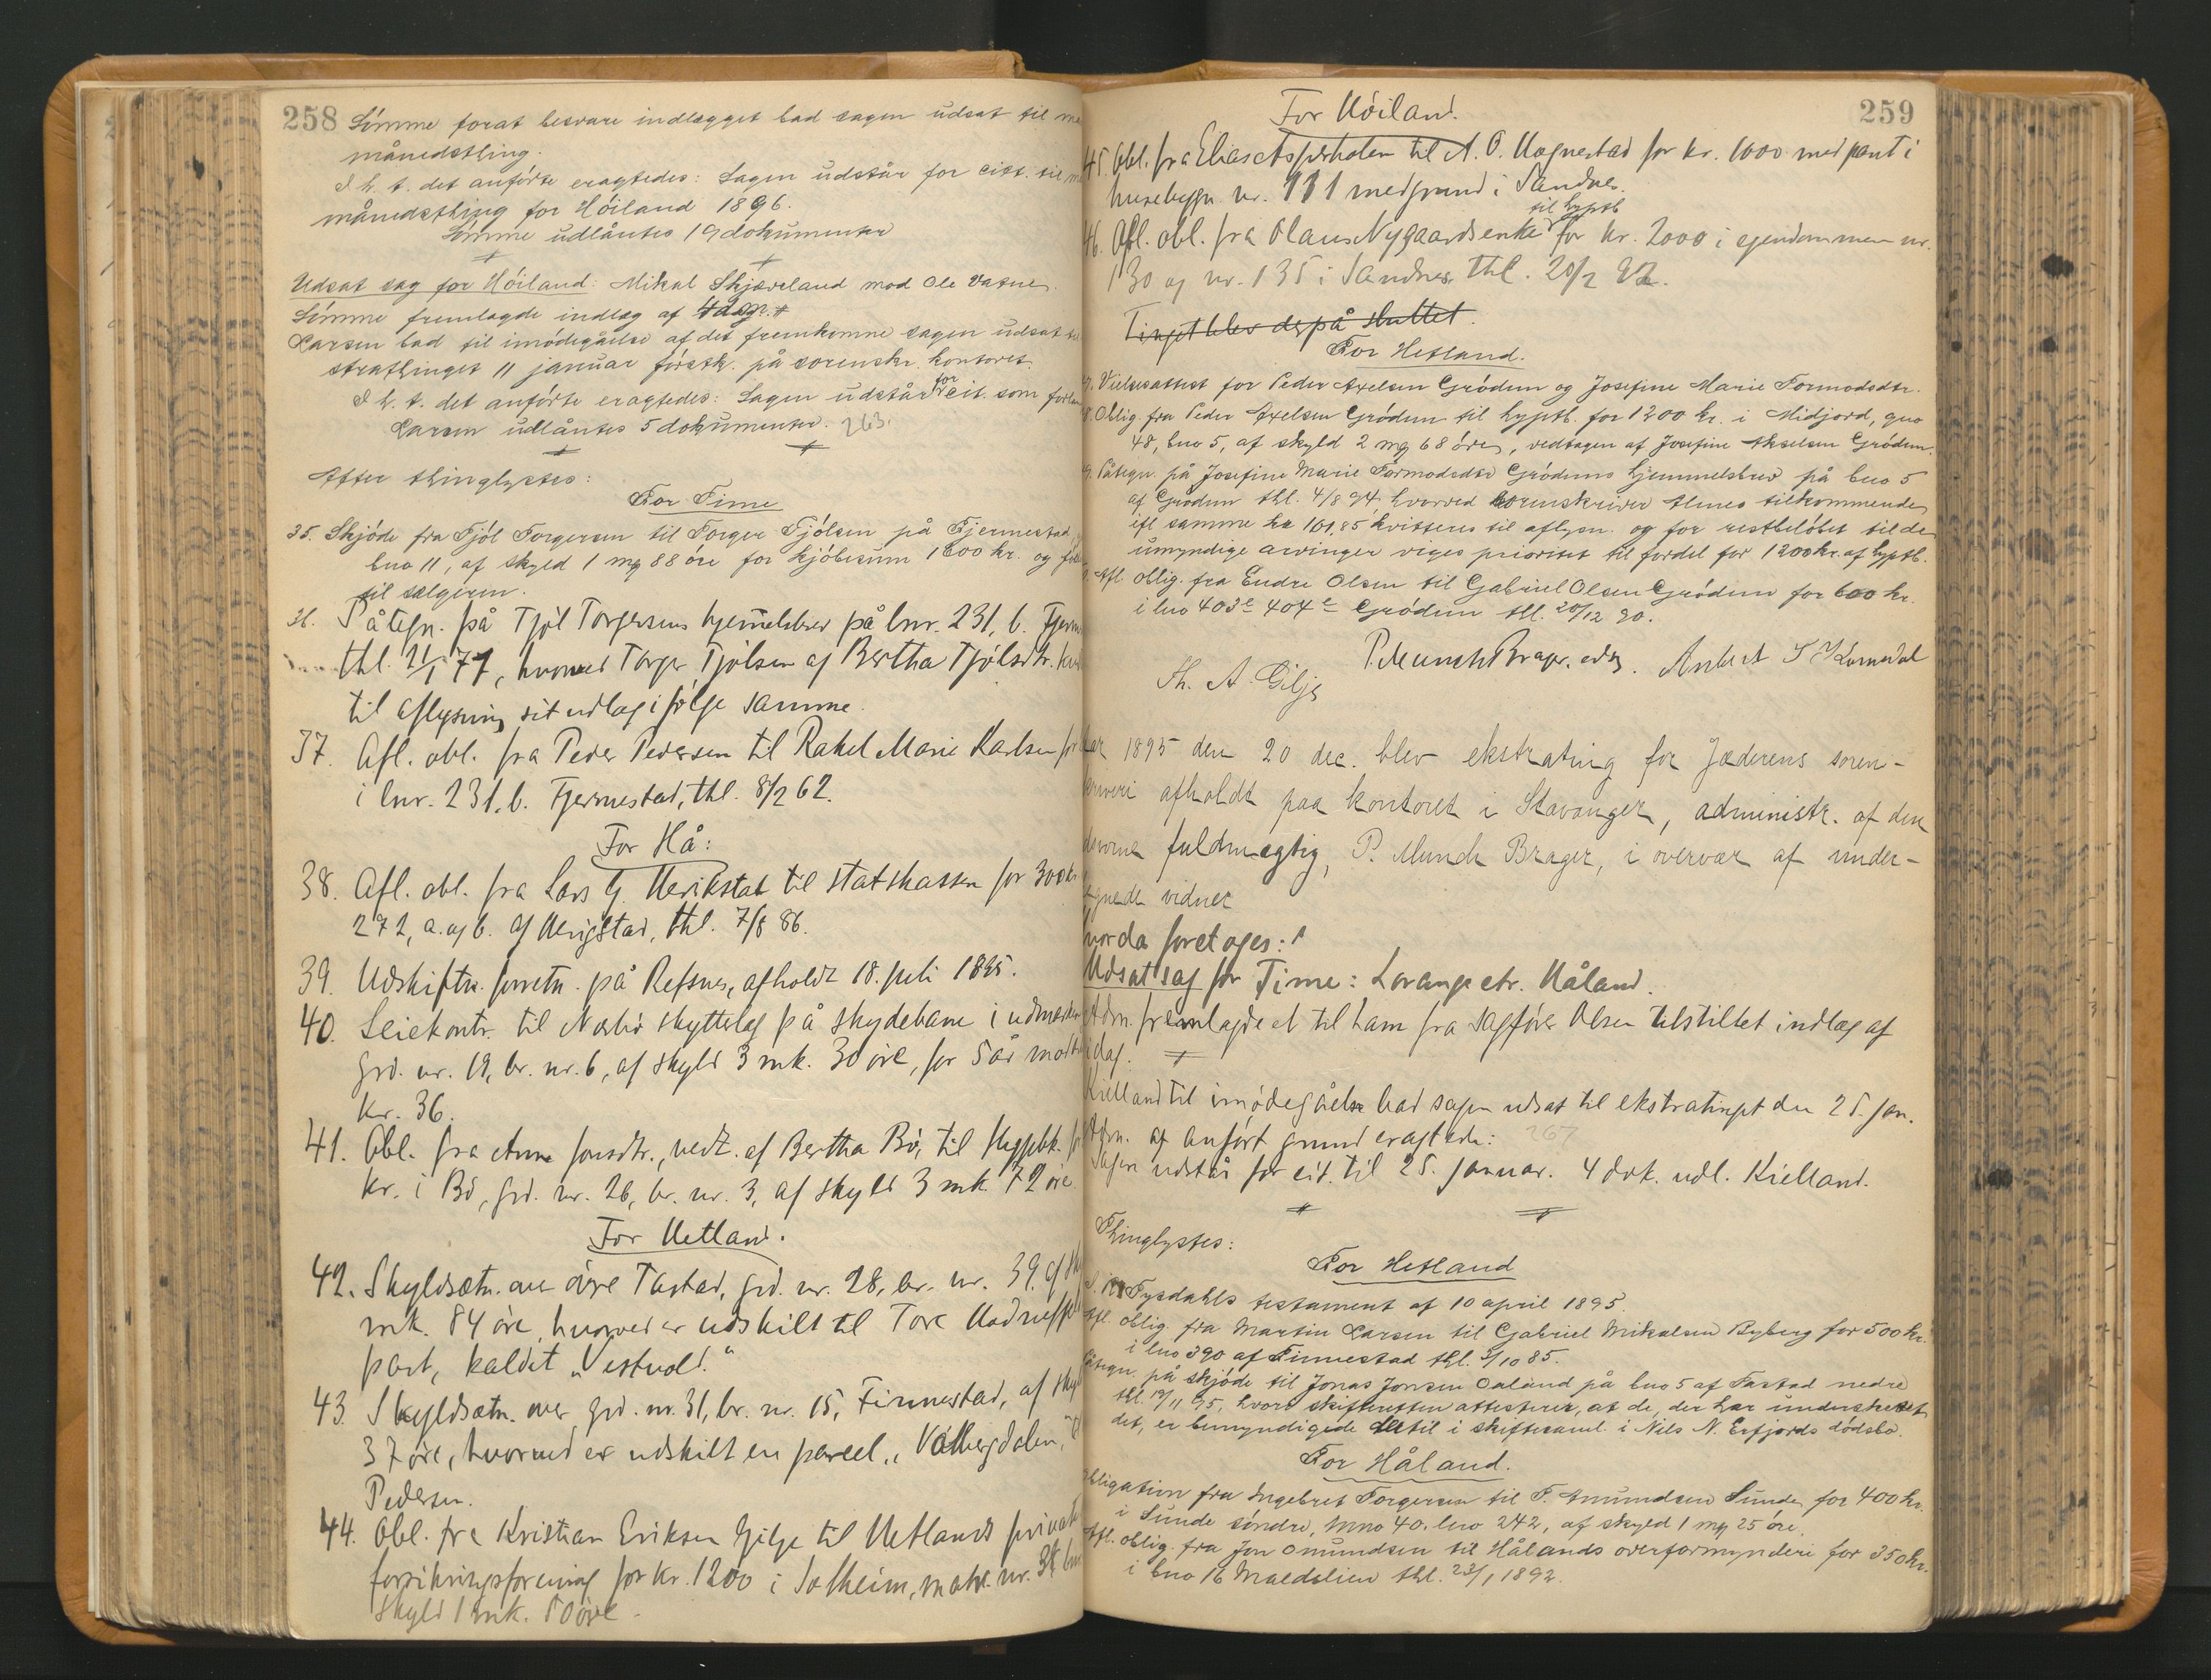 258 Sömme forat besvare indlægget bad sagen udsat til
månedsthing.
I h. t. det anförte eragtedes: Sagen udstår for cict. til
månedsthing for Höiland 1896.
Sömme udlåntes 19 dokumenter
Udsat sag for Höiland: Mikal Skjæveland mod Ole Vatne.
Sömme fremlagde indlæg af
Larsen bad til imödegåelse af det fremkomne sagen udsat
strathinget 11 januar förstk. på sorenskr. kontoret.
I h. t. det anförte eragtedes: Sagen udstår for cit. som
Larsen udlåntes 5 dokumenter. 263.
Atter thinglystes:
For Time
35. Skjöde fra Tjöl Torgersen til Torger Tjölsen på Fjermestad
bno 11, af skyld 1 mg 88 öre for kjöbesum 1600 kr. og
til sælgeren.
36. Påtegn. på Tjöl Torgersens hjemmelsbrev på lnr. 231, b.
thl. 77, hvorved Torger Tjölsen og Bertha Tjölsdtr.
til aflysning sit udlæg ifölge samme.
37. Afl. obl. fra Peder Pedersen til Rakel Marie Karlsen
i lnr. 231, b. Fjermestad, thl. 8/2 62.
For Hå:
38. Afl. obl. fra Lars G. Herikstad til statskassen for 300
272, a. og b. af Herigstad, thl. 7/8 86.
39. Udskiftn. forretn. på Refsnes, afholdt 18. juli 1895.
40. Leiekontr. til Nærbö skytterlag på skydebane i udmarken
grd. nr. 19, br. nr. 6, af skyld 3 mk. 30 öre, for 5 år mod
kr. 36.
41. Obl. fra Anne Jonsdtr., vedt. af Bertha Bö, til Hyppbk.
kr. i Bö, grd. nr. 26, br. nr. 3, af skyld 3 mk. 72 öre.
For Hetland.
42. Skyldsætn. over övre Tastad, grd. nr. 28, br. nr. 39. af
mk. 84 öre, hvorved er udskilt til Tore
part, kaldet „Vestvold."
43. Skyldsætn. over grd. nr. 31, br. nr. 15, Finnestad, af
37 öre, hvorved er udskilt en parcel „Vålbergdalen,"
Pedersen.
44. Obl. fra Kristian Eriksen Gilje til Hetlands
forsikringsforening for kr. 1200 i Solheim, matr. nr.
skyld 1 mk. 50 öre.
259
For Höiland.
45. Obl. fra Elias Asperholen til A. O. Hognestad for kr. 1600 med pant i
husebygn. nr. 111 med grund i Sandnes.
til hyptb
46. Afl. obl. fra Olaus Nygaards enke for kr. 2000 i ejendommen nr.
130 og nr. 135 i Sandnes thl. 20/2 92.
Tinget blev derpå sluttet.
For Hetland.
Vielsesattest for Peder Axelsen Grödem og Josefine Marie Tormodsdtr.
Oblig fra Peder Axelsen Grödem til hyptb. for 1200 kr. i Midjord, gno
48, bno 5, af skyld 2 mg 68 öre, vedtagen af Josefine Akselsen Grödem.
Påtegn. på Josefine Marie Tormodsdtr Grödems hjemmelsbrev på bno 5
af Grödem thl. 4/8 94, hvorved sorenskriver Almes tilkommende
ifl samme kr 101,85 kvitteres til aflysn. og for restbelöbet til de
umyndige arvinger viges prioritet til fordel for 1200 kr. af hyptb.
Afl. oblig. fra Endre Olsen til Gabriel Olsen Grödem for 600 kr.
i lno 403c 404c Grödem thl. 20/12 90.
P. Munch Brager. eds. Anbert
Th. A. Gilje
Aar 1895 den 20 dec. blev ekstrating for Jæderens soren-
skriveri afholdt paa kontoret i Stavanger, administr. af den
edsvorne fuldmægtig, P. Munch Brager, i overvær af under-
tegnede vidner
hvorda foretoges:
Udsat sag for Time: Lorange ctr. Håland.
Adm. fremlagde et til ham fra sagförer Olsen tilstillet indlæg af
idag.
Kielland til imödegåelse bad sagen udsat til ekstratinget den 25. jan.
Adm. af anfört grund eragtede: 267
Sagen udstår for cit. til 25. januar. 4 dok. udl. Kielland.
Thinglystes:
For Hetland
Tysdahls testament af 10 april 1895.
Afl. oblig. fra Martin Larsen til Gabriel Mikalsen Byberg for 500 kr.
i lno 390 af Finnestad thl. 3/10 85.
Påtegn på skjöde til Jonas Jonsen Oaland på bno 5 af Tastad nedre
thl. 19/11 95, hvori skifteretten attesterer, at de, der har underskrevet
det, er bemyndigede dertil i skiftesaml. i Nils N. Erfjords dödsbo.
For Håland.
Obligation fra Ingebret Torgersen til T. Amundsen Sunde for 400 kr.
i Sunde söndre, mno 40. lno 242, af skyld 1 mg 25 öre.
Afl. oblig. fra Jon Omundsen til Hålands overformynderi for 350 kr.
i bno 16 Maldelien thl. 23/1 1892.